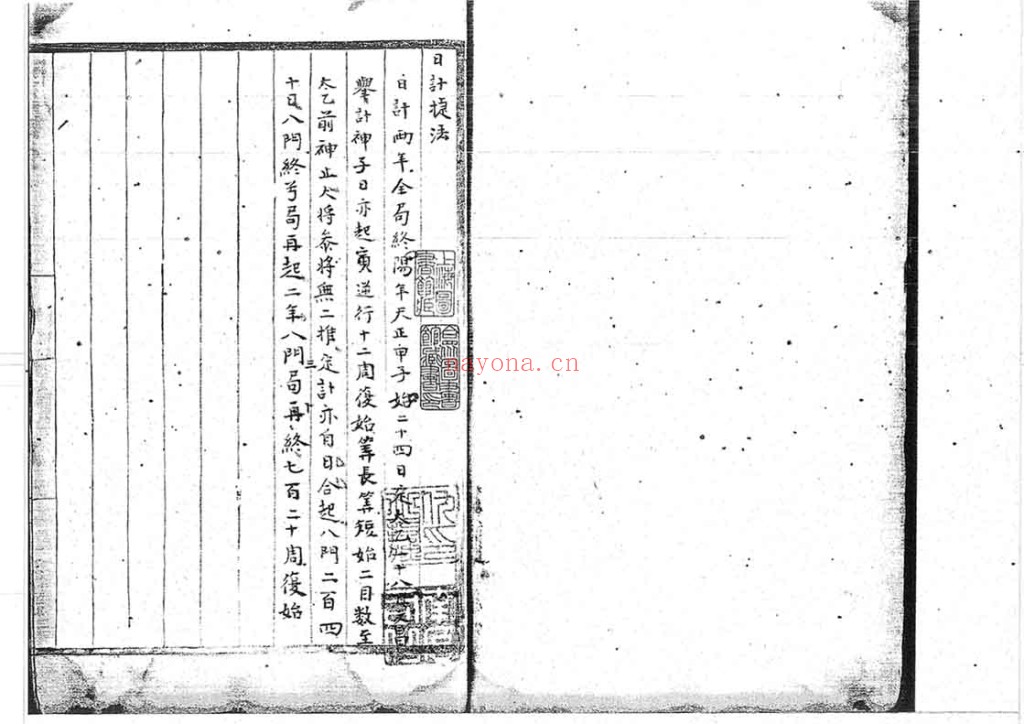 日計捷法
日計両年全局終陽年天正甲子始二十四日
舉計神子日亦起寅逆行十二周復始筭長筭短始二目数至
太乙前神止大將叅將無二推定計亦自日合起八門二百四
十日八門終兮局再起二年八門局再終七百二十周復始
上海圖書館藏
nayona.cn